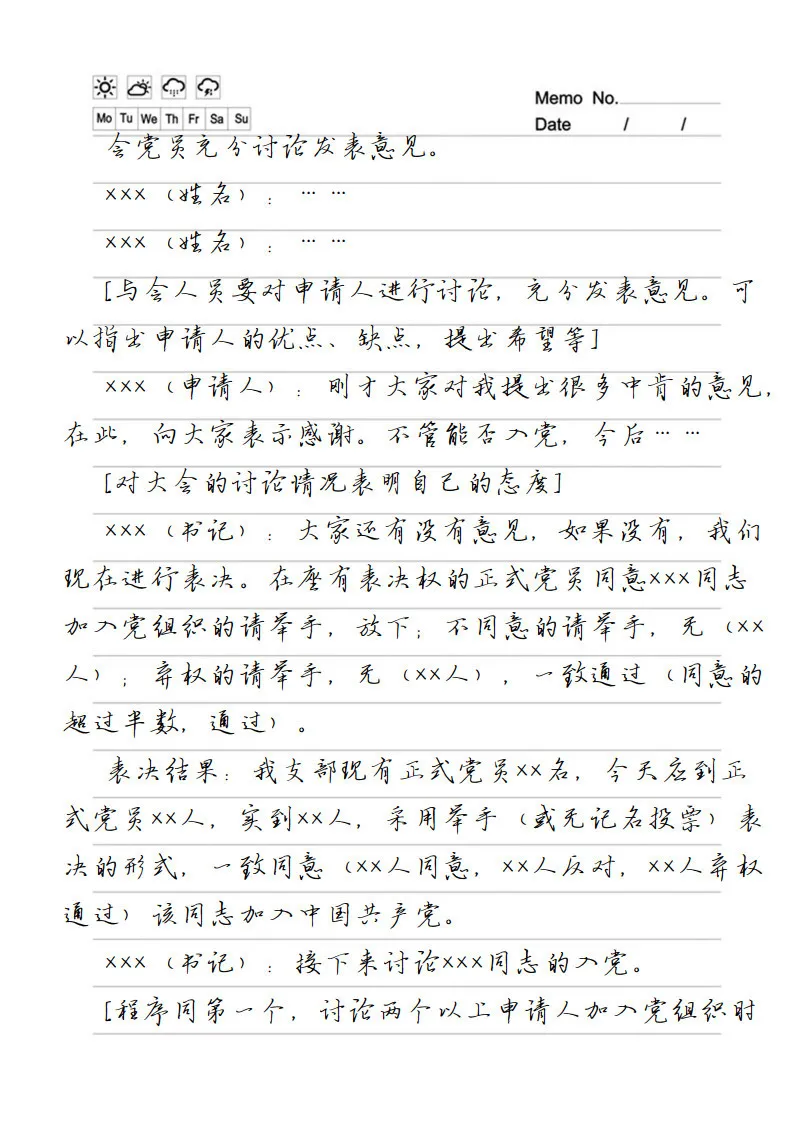 Memo No.
Mo Tu We Th Fr Sa Su
Date / /
会党员充分讨论发表意见。
×××（姓名）：……
×××（姓名）：……
[与会人员要对申请人进行讨论，充分发表意见。可
以指出申请人的优点、缺点，提出希望等]
×××（申请人）：刚才大家对我提出很多中肯的意见，
在此，向大家表示感谢。不管能否入党，今后……
[对大会的讨论情况表明自己的态度]
×××（书记）：大家还有没有意见，如果没有，我们
现在进行表决。在座有表决权的正式党员同意×××同志
加入党组织的请举手，放下；不同意的请举手，无（××
人）；弃权的请举手，无（××人），一致通过（同意的
超过半数，通过）。
表决结果：我支部现有正式党员××名，今天应到正
式党员××人，实到××人，采用举手（或无记名投票）表
决的形式，一致同意（××人同意，××人反对，××人弃权
通过）该同志加入中国共产党。
×××（书记）：接下来讨论×××同志的入党。
[程序同第一个，讨论两个以上申请人加入党组织时